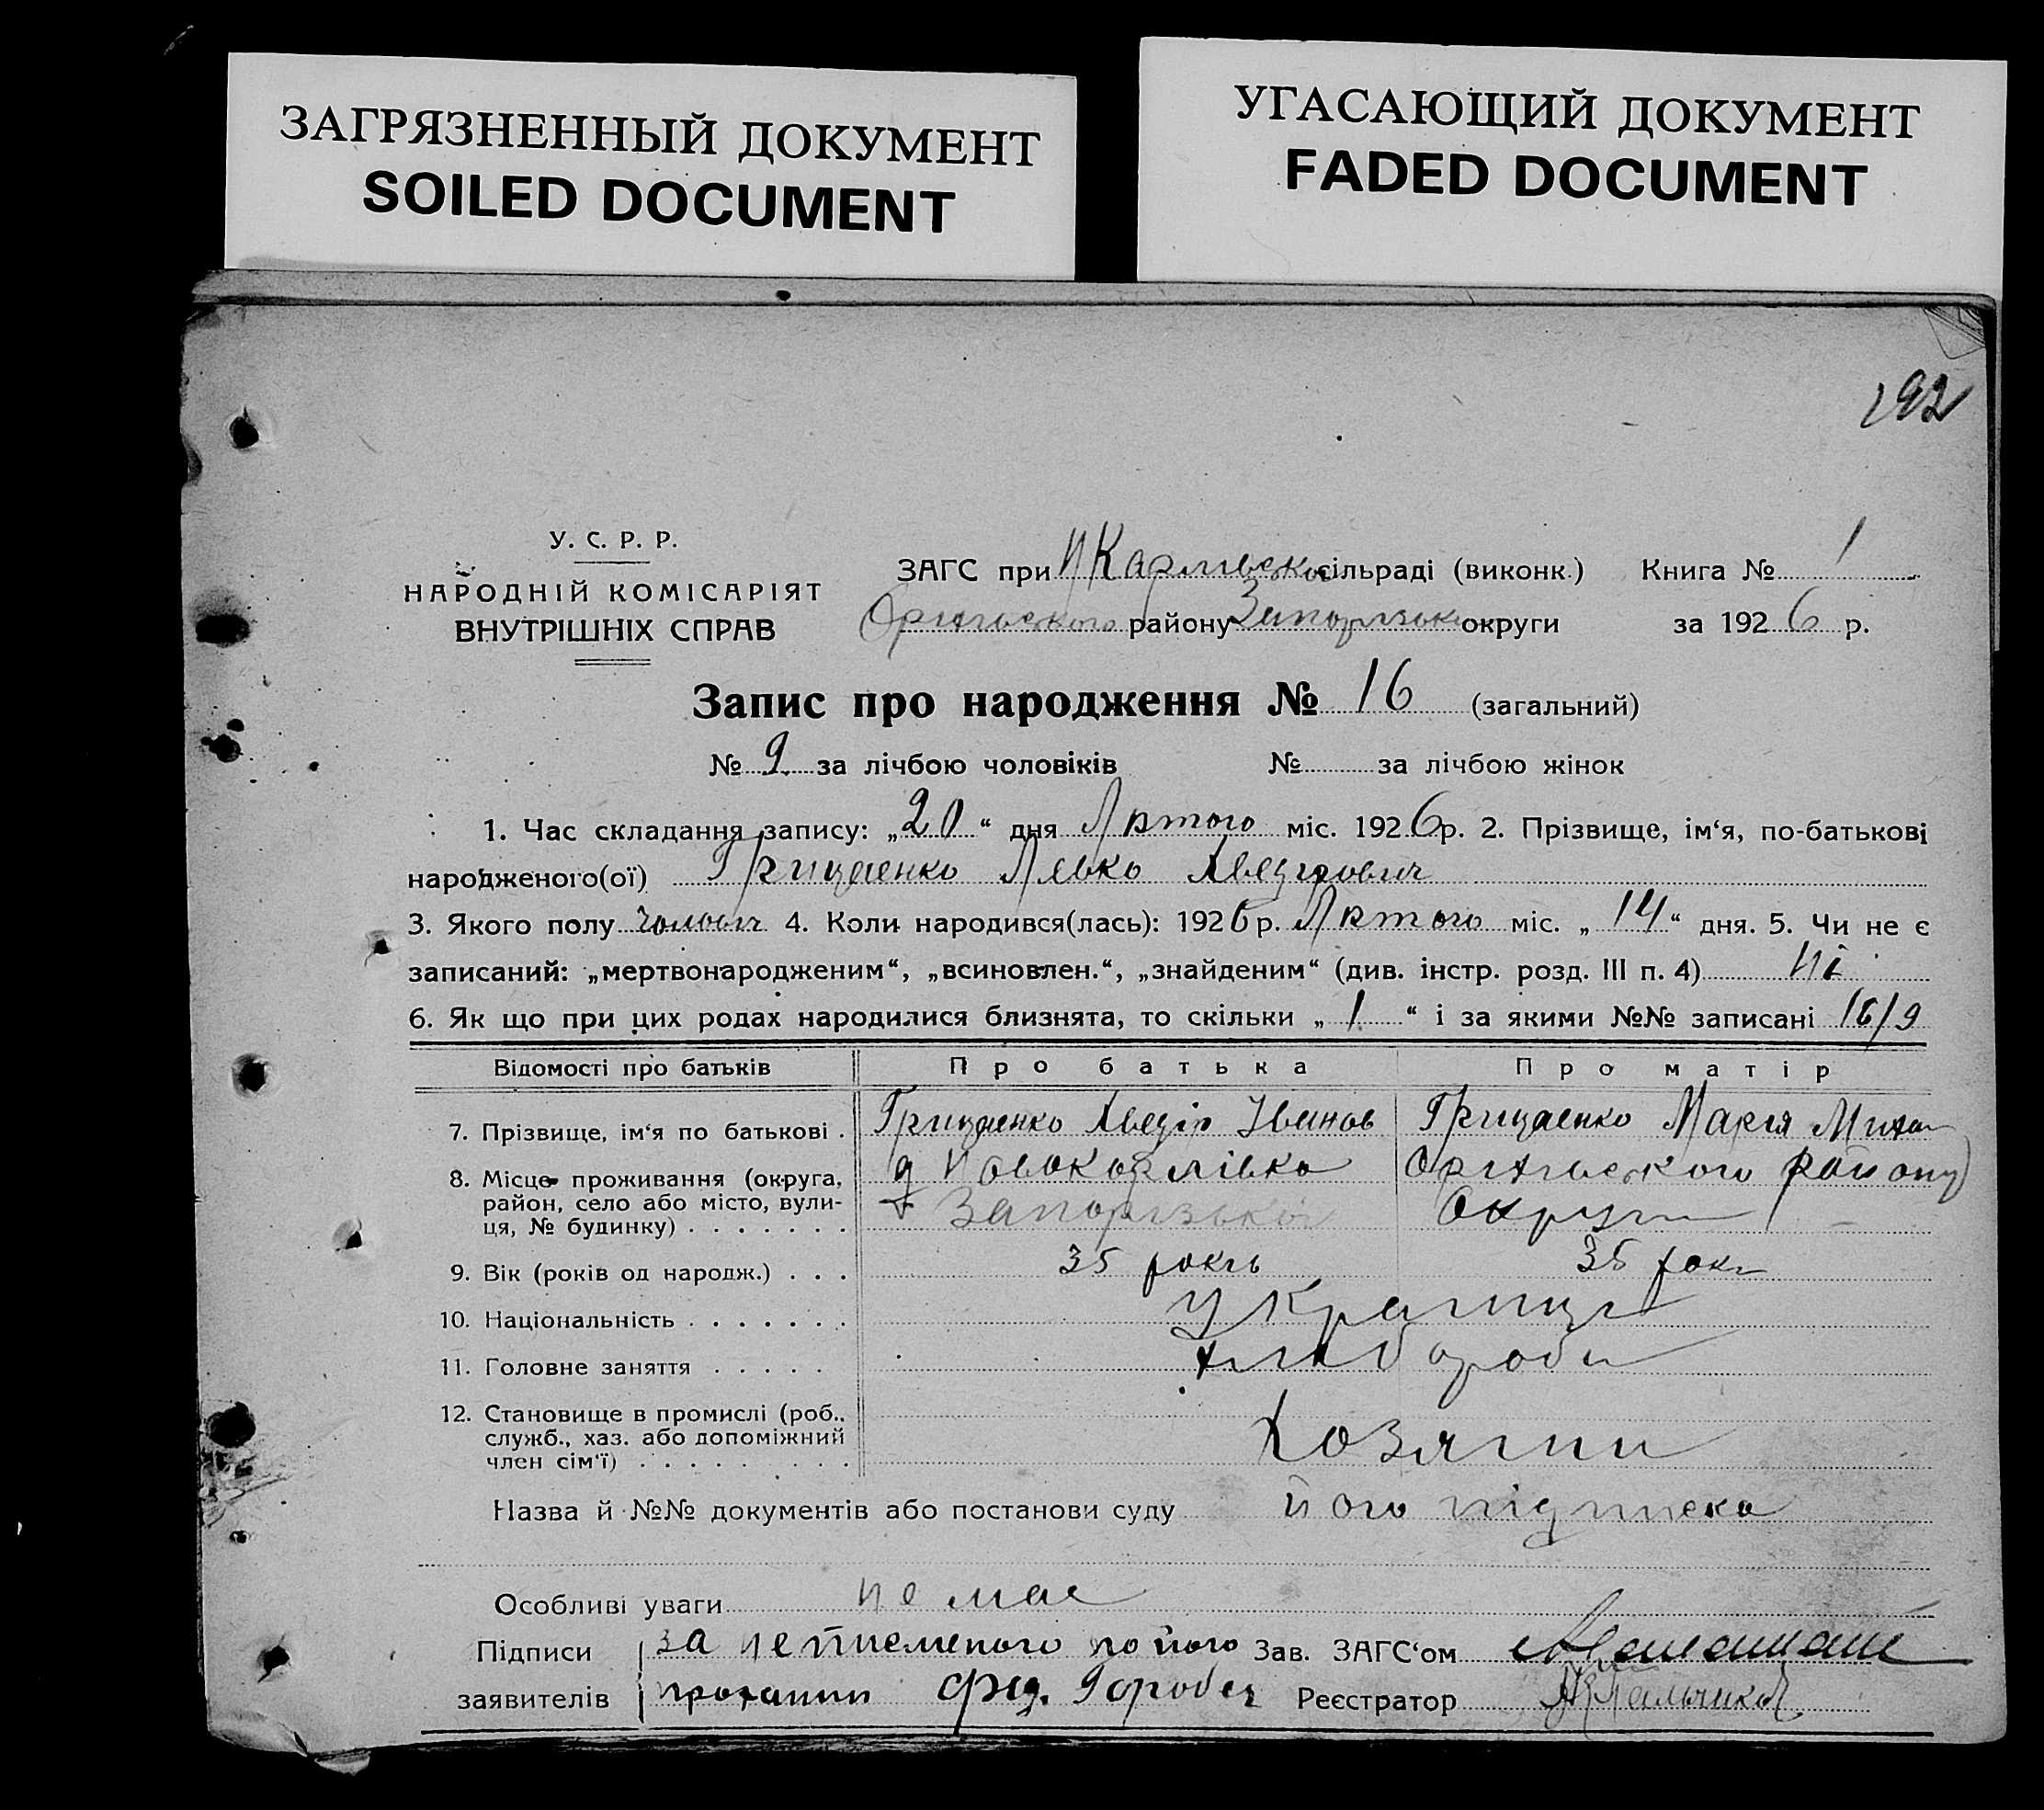 ЗАГРЯЗНЕННЫЙ ДОКУМЕНТ
SOILED DOCUMENT
УГАСАЮЩИЙ ДОКУМЕНТ
FADED DOCUMENT
192
У. С. Р. Р.
НАРОДНІЙ КОМІСАРІЯТ
ВНУТРІШНІХ СПРАВ
ЗАГС при сільраді (виконк.) Книга № 1
Оріхівського району Запорізьк округи за 1926 р.
Запис про народження № 16 (загальний)
№ 9 за лічбою чоловіків № за лічбою жінок
1. Час складання запису: „20“ дня Лютого міс. 1926 р. 2. Прізвище, ім‘я, по-батькові
народженого(ої) Грицаенко Левко Хведорович
3. Якого полу чоловіч 4. Коли народився(лась): 1926 р. Лютого міс. „14“ дня. 5. Чи не є
записаний: „мертвонародженим“, „всиновлен.“, „знайденим“ (див. інстр. розд. III п. 4) ні
6. Як що при цих родах народилися близнята, то скільки „1“ і за якими №№ записані 16/9
Відомості про батьків Про батька Про матір
7. Прізвище, ім‘я по батькові . Грицаенко Хведір Іванов Грицаенко Марія Миха
8. Місце проживання (округа, Новокарлівка Оріхівського району
район, село або місто, вули- Запорізької Округи
ця, № будинку) . . . . . . .
9. Вік (років од народж.) . . . 35 років 35 рокі
10. Національність . . . . . . . Українці
11. Головне заняття . . . . . Хлібороби
12. Становище в промислі (роб.,
служб., хаз. або допоміжний Хозяїни
член сім‘ї) . . . . . . . . .
Назва й №№ документів або постанови суду його підписка
Особливі уваги немае
Підписи за неписьменого по його Зав. ЗАГС‘ом
заявителів проханню Фед. Горобец Реєстратор